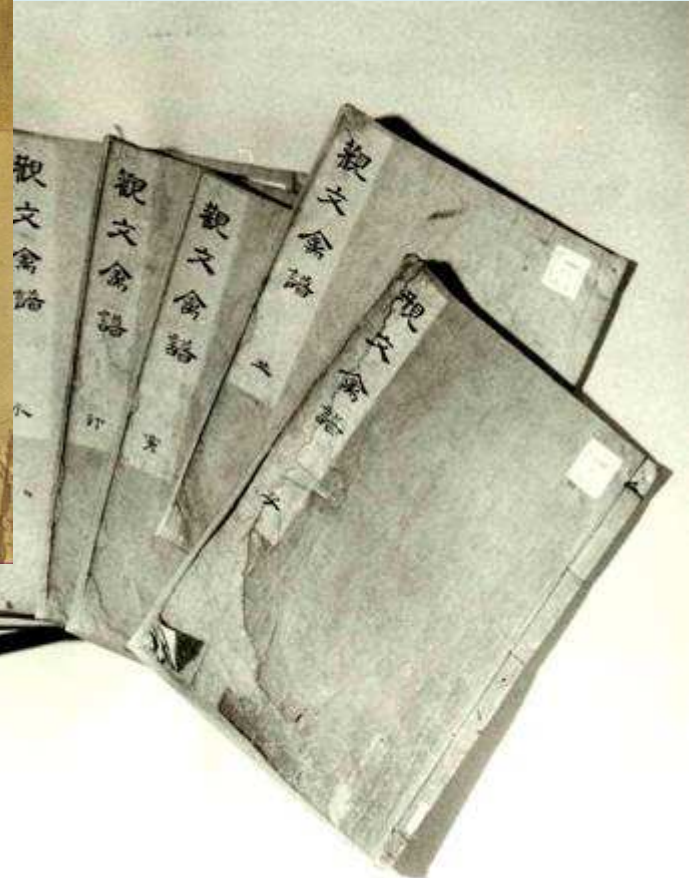 觀文禽譜
觀文禽譜
觀文禽譜
觀文禽譜
觀文禽譜